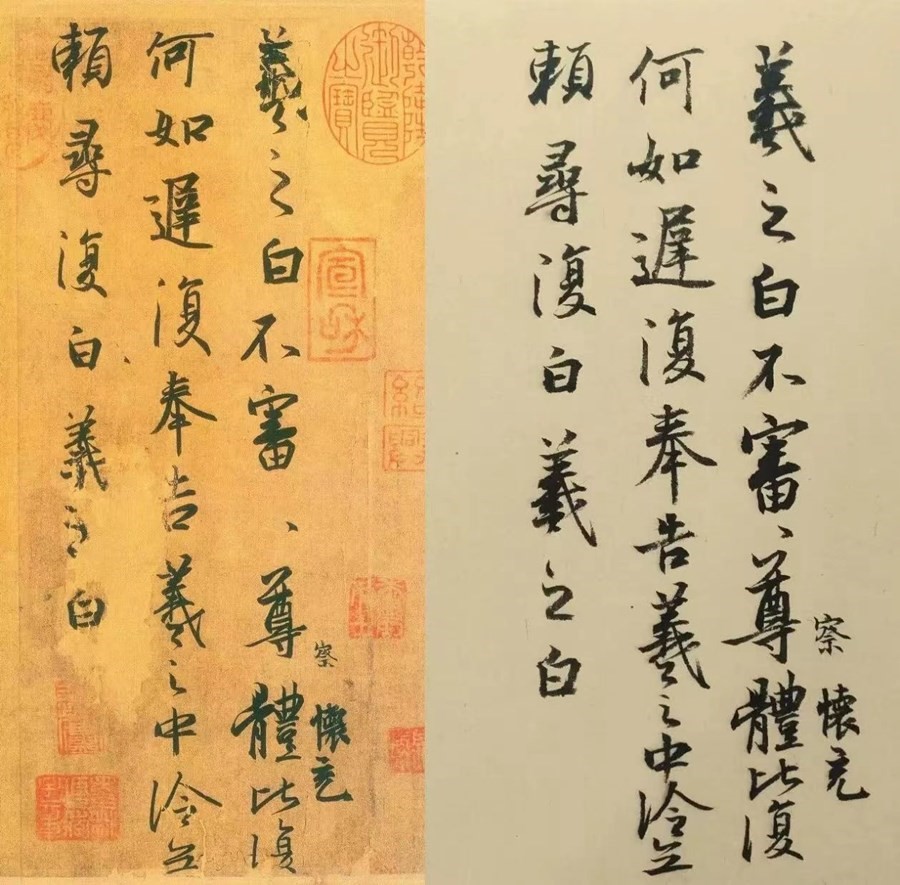 羲之白不審、尊體比復
察懷充
何如遲復奉告羲之中冷並
賴尋復白羲之白
宣和
紹興
羲之白不審、尊體比復
察懷充
何如遲復奉告羲之中冷並
賴尋復白羲之白